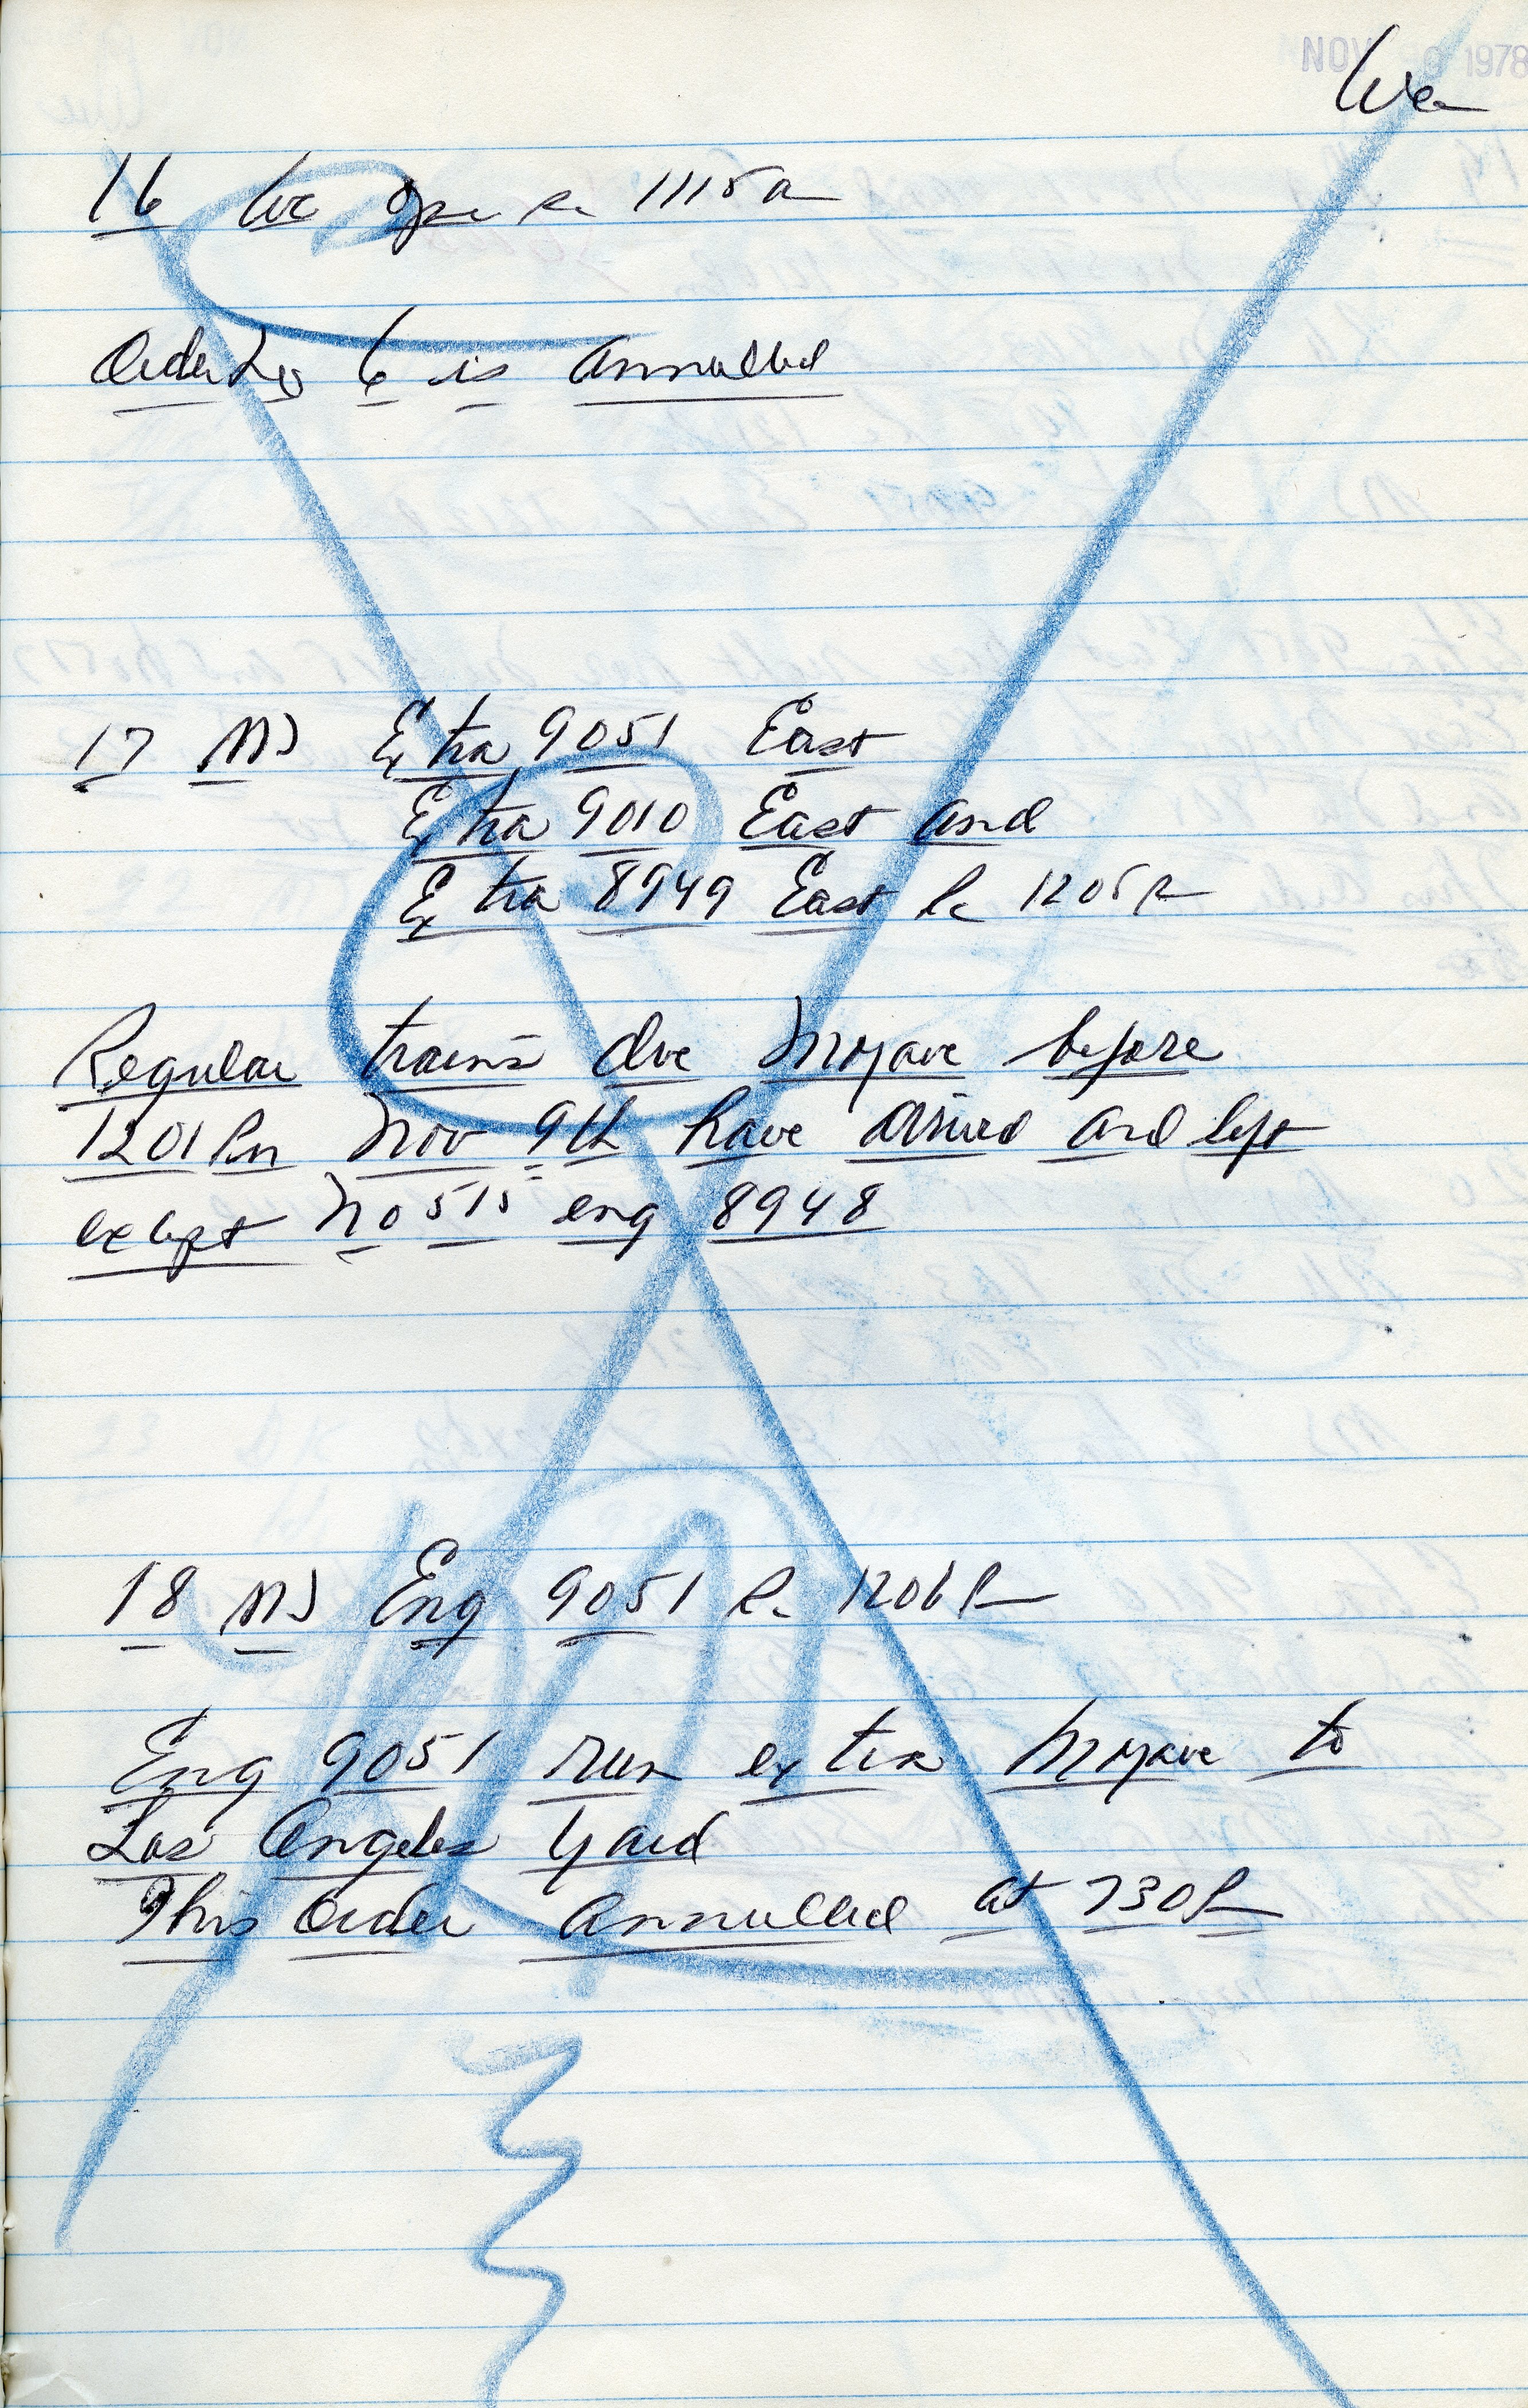 NOV 9 1978
16 Opr 1115a
Order No 6 is annulled
17 MJ Extra 9051 East
Extra 9010 East and
Extra 8949 East 1205P
Regular trains due Mojave before
1201Pm Nov 9th have arrived and left
except No 515 eng 8948
18 MJ Eng 9051 1206P
Eng 9051 run extra Mojave to
Los Angeles Yard
This Order annulled at 730P